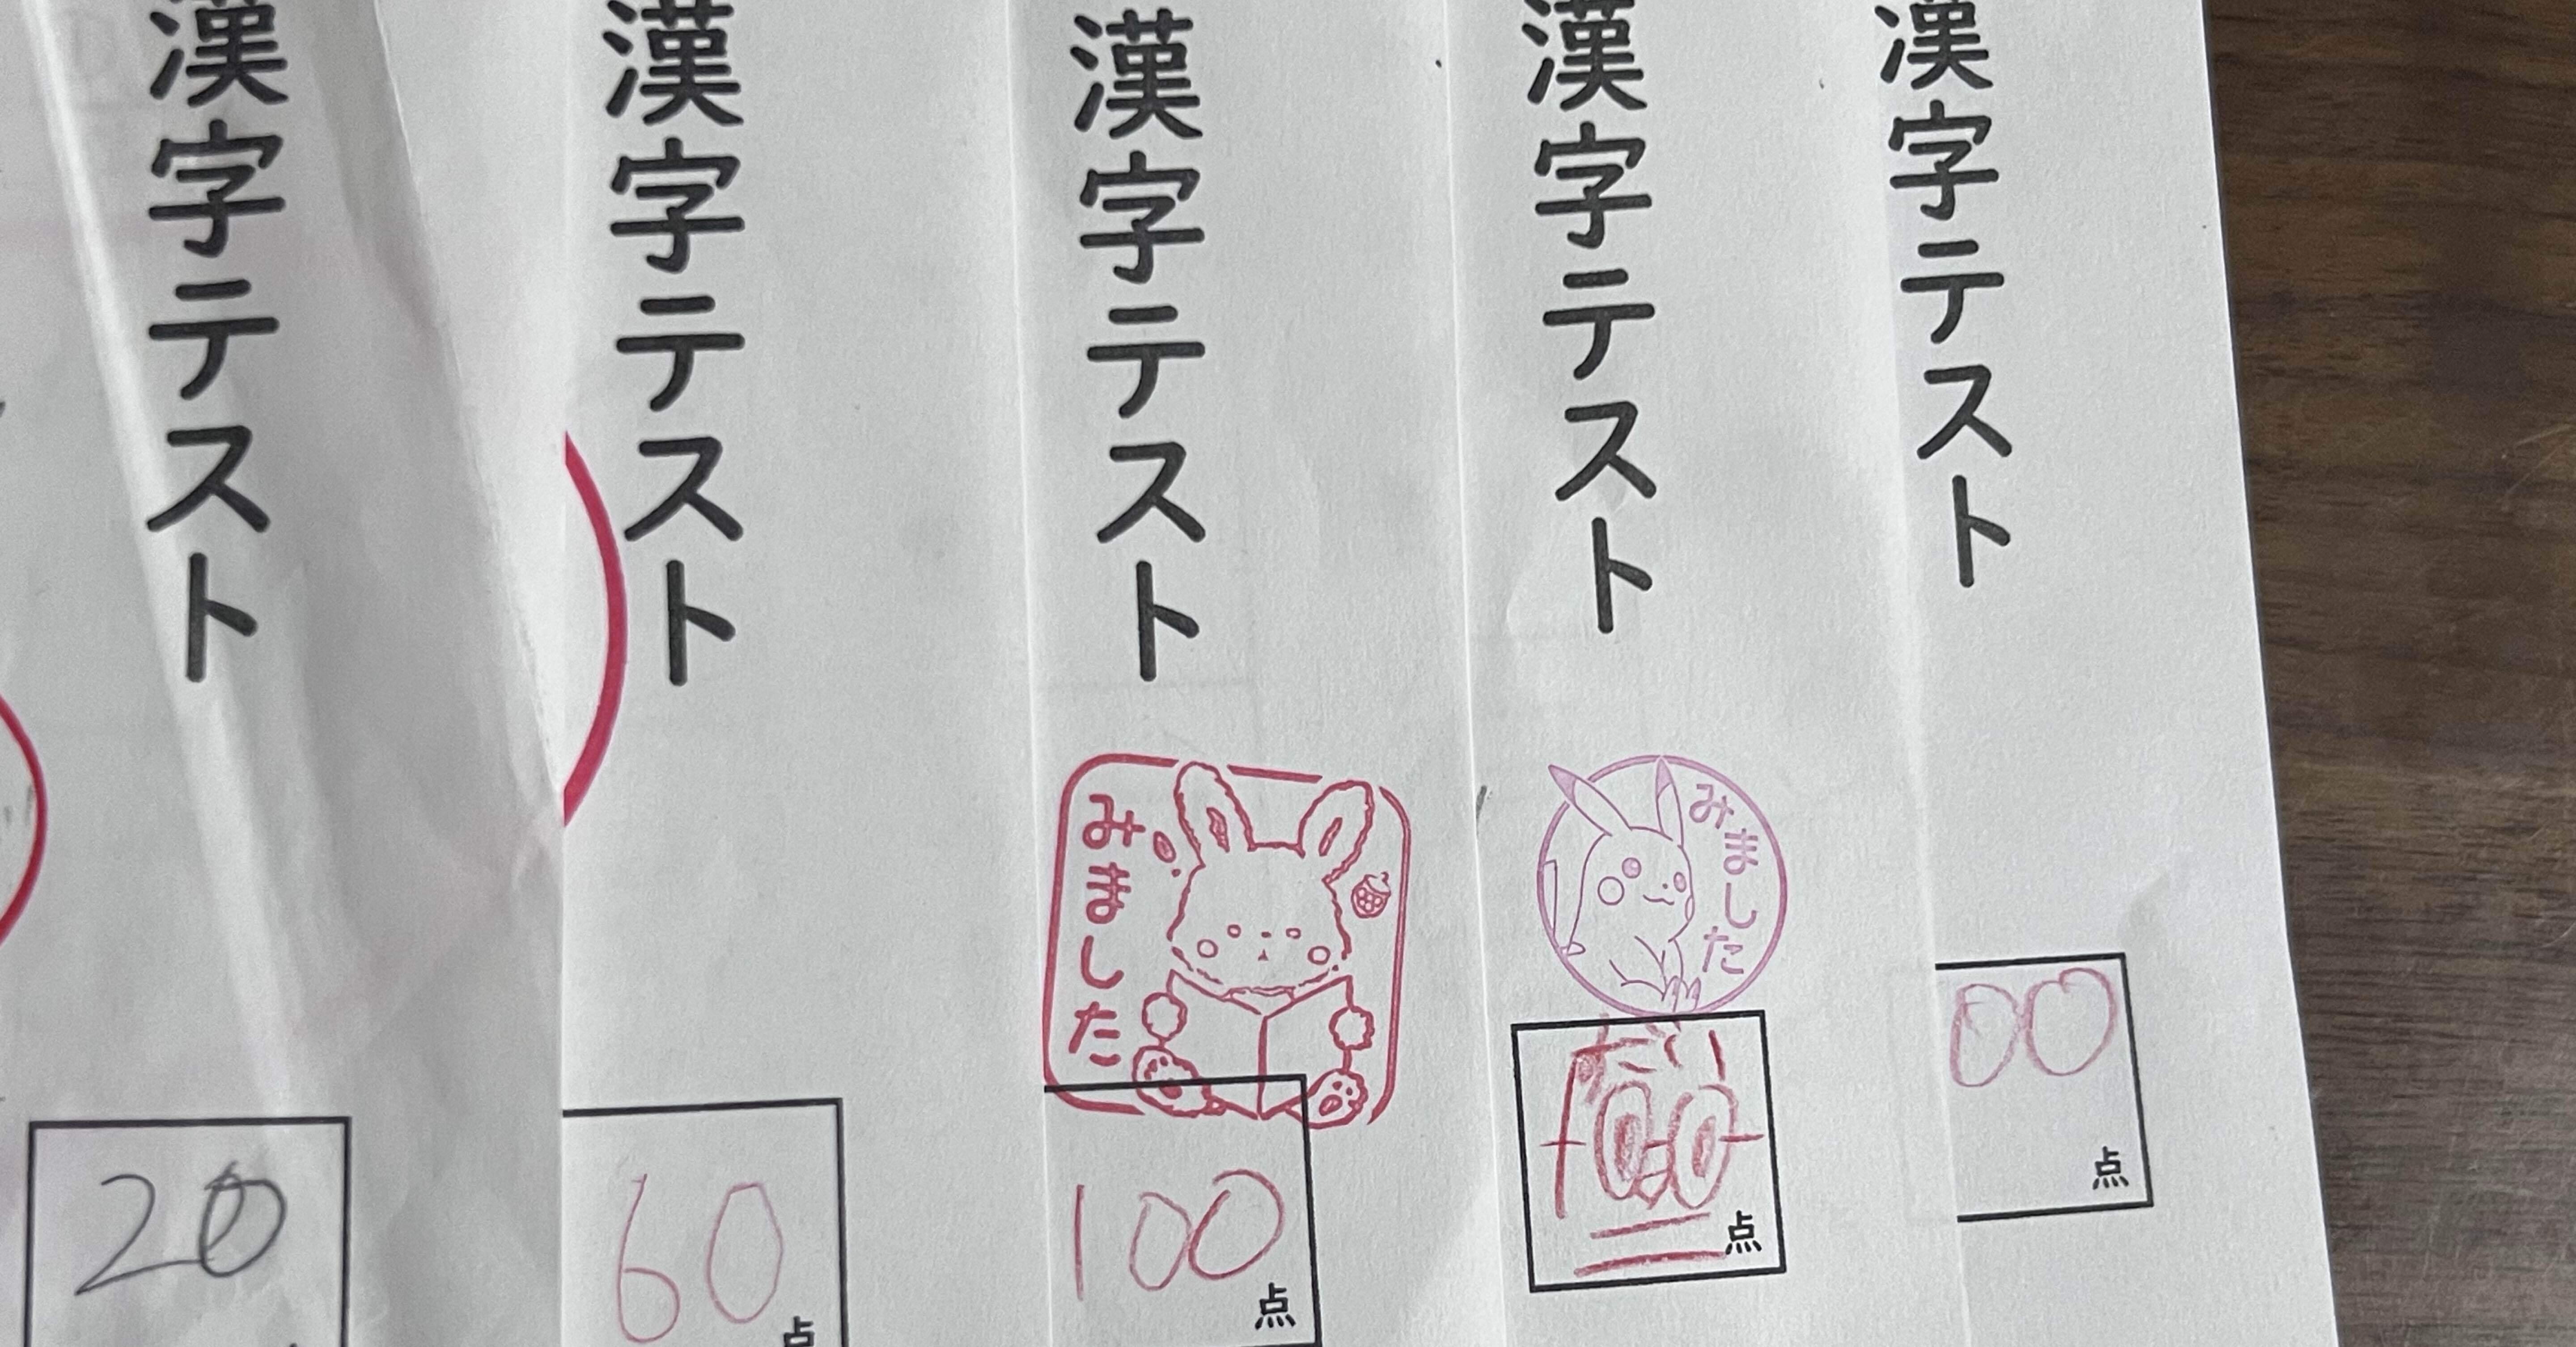 漢字テスト
00
点
漢字テスト
みました
100
点
漢字テスト
みました
100
点
漢字テスト
60
点
漢字テスト
20